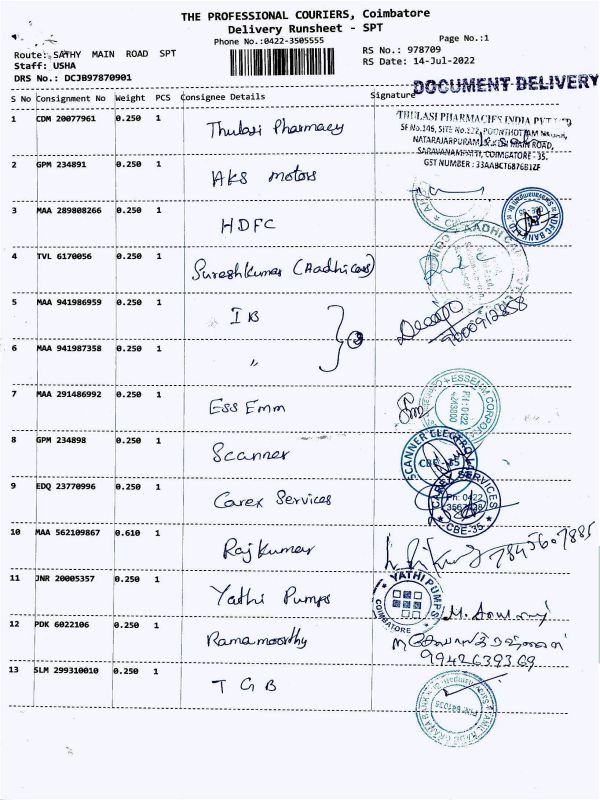 THE PROFESSIONAL COURIERS, Coimbatore
Delivery Runsheet - SPT
Phone No.:0422-3505555
Page No.:1
Route: SATHY MAIN ROAD SPT
RS No.: 978709
Staff: USHA
RS Date: 14-Jul-2022
DRS No.: DCJB97870901
DOCUMENT DELIVERY
S No Consignment No Weight PCS Consignee Details Signature
1 CDM 20077961 0.250 1 Thulasi Pharmacy
THULASI PHARMACIES INDIA PVT LTD
SF No.146, SITE No.
NATARAJARPURAM, MAIN ROAD,
SARAVANAMPATTI, COIMBATORE - 35.
GST NUMBER : 33AABCT6876B1ZF
2 GPM 234891 0.250 1 AKS Motors
3 MAA 289808266 0.250 1 HDFC
HDFC BANK LTD
4 TVL 6170056 0.250 1 Sureshkumar (Aadhi Cars)
AADHI CAR
5 MAA 941986959 0.250 1 I B
2
9600912858
6 MAA 941987358 0.250 1 "
7 MAA 291486992 0.250 1 Ess Emm
ESSEMM CORPOR
PH : 0422
8 GPM 234898 0.250 1 Scanner
SCANNER ELECTRO
CBE-35
9 EDQ 23770996 0.250 1 Carex Services
CAREX SERVICES
Ph: 0422
CBE-35
10 MAA 562109867 0.610 1 Rajkumar
7845607885
11 JNR 20005357 0.250 1 Yathi Pumps
YATHI PUMPS
COIMBATORE
12 PDK 6022106 0.250 1 Ramamoorthy
9942639369
13 SLM 299310010 0.250 1 T G B